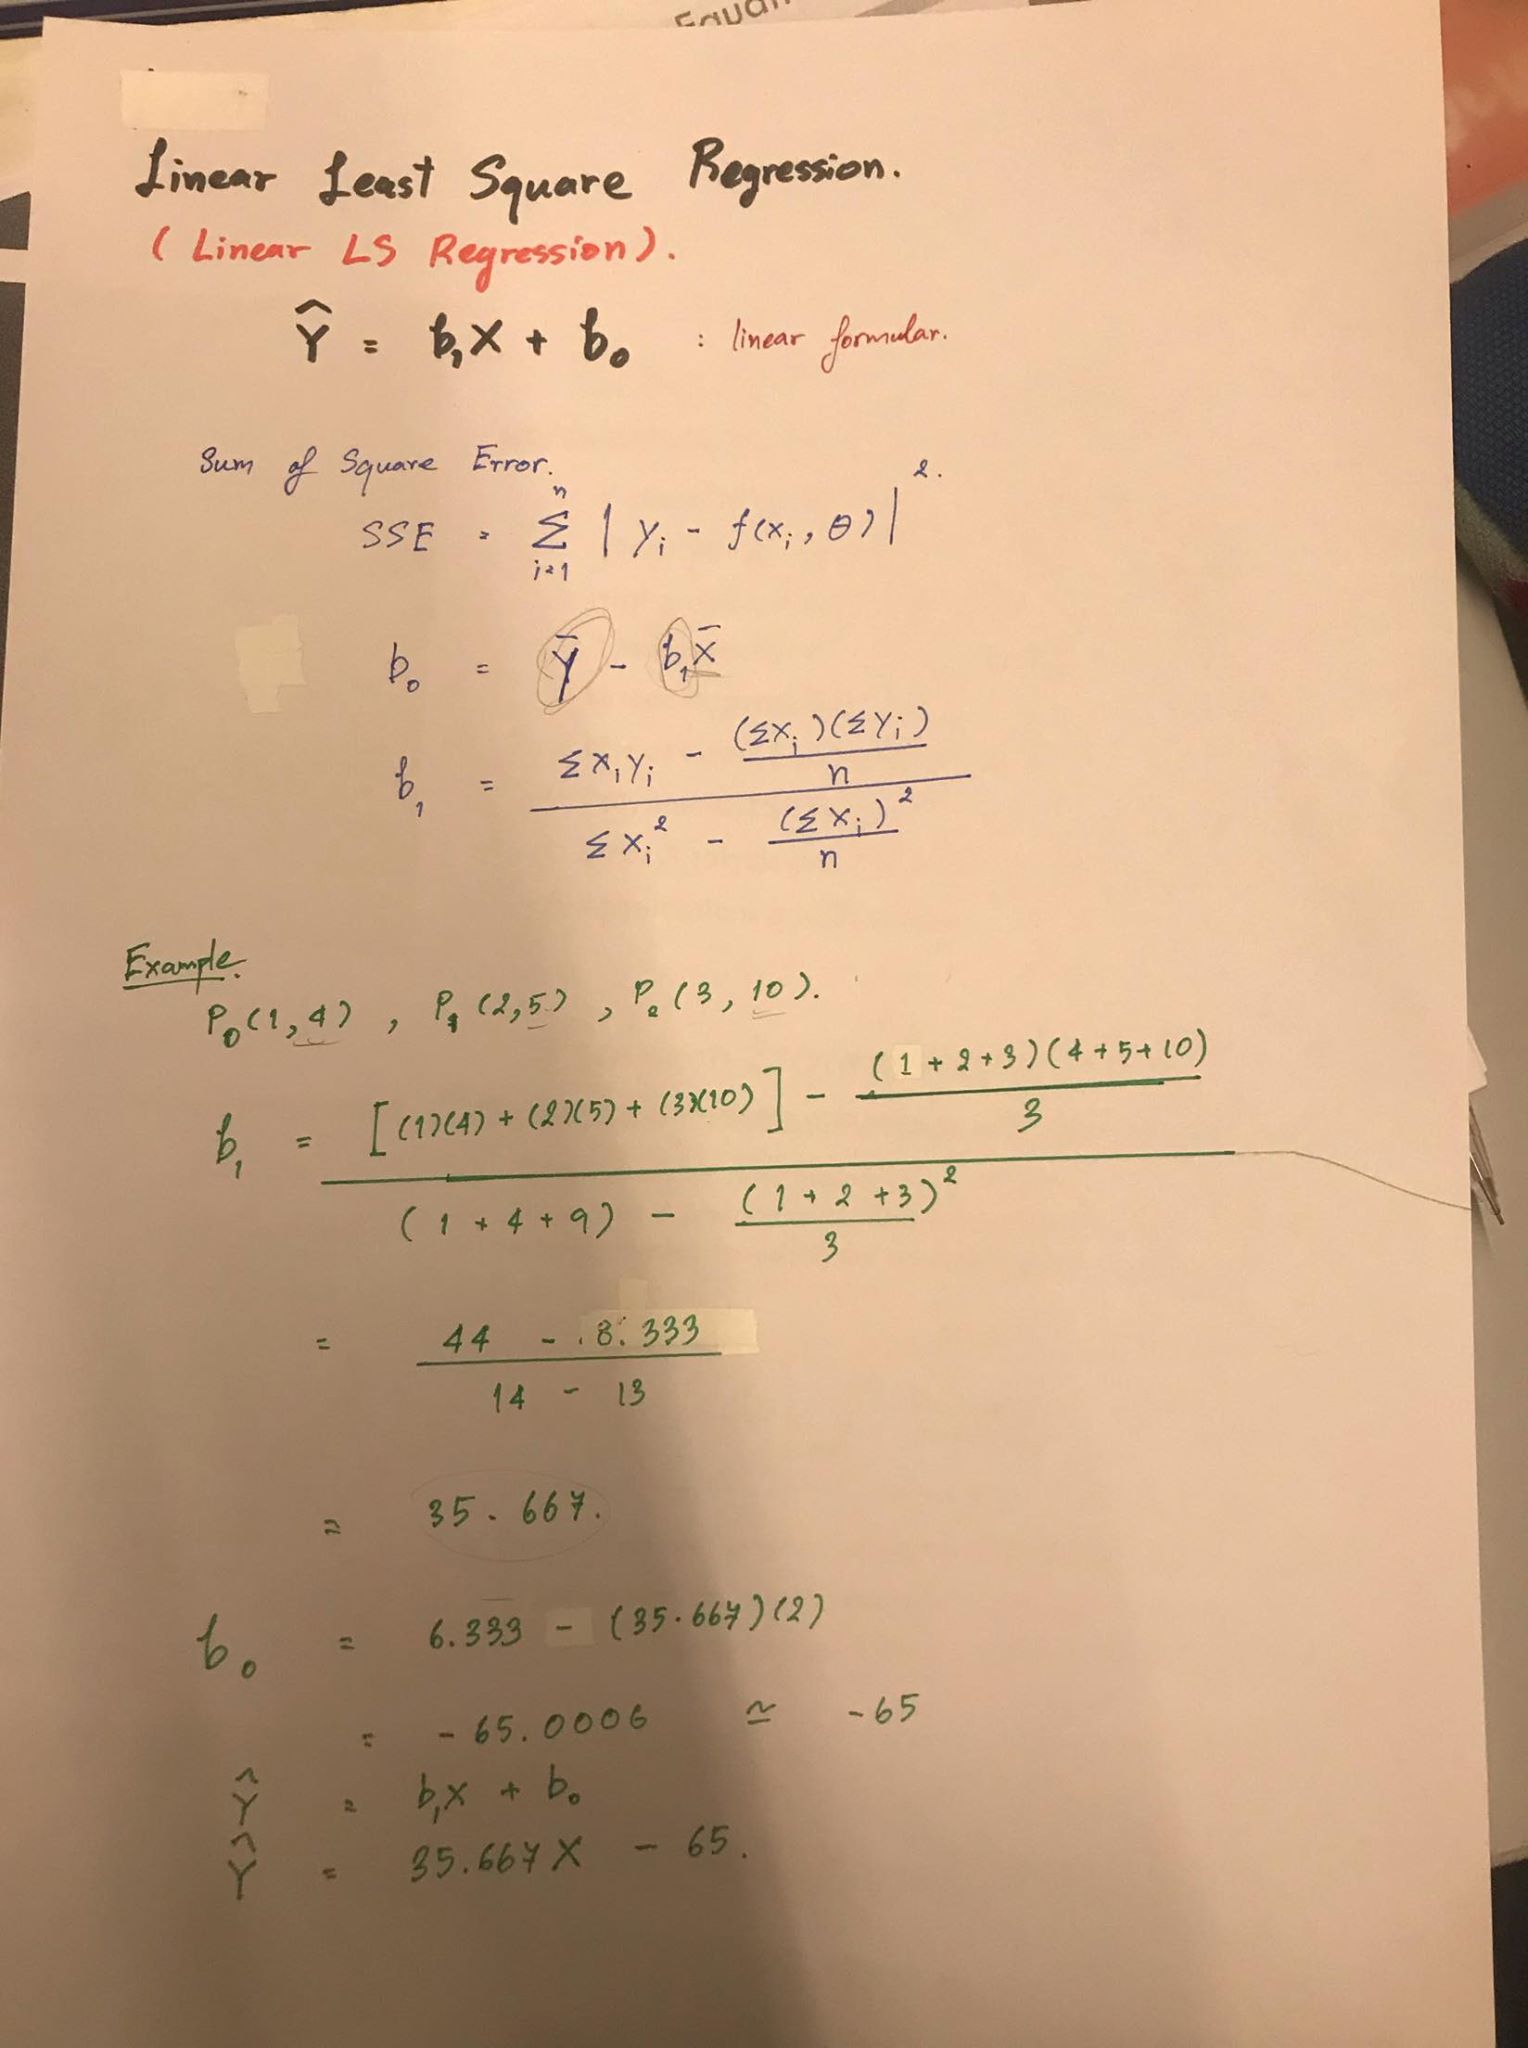 Equati
Linear Least Square Regression.
(Linear LS Regression).
Ŷ = b₁X + b₀ : linear formular.
Sum of Square Error.
SSE = Σⁿᵢ₌₁ | yᵢ - f(xᵢ, θ)|².
b₀ = Ȳ - b₁X̄
b₁ = (Σxᵢyᵢ - (Σxᵢ)(Σyᵢ)/n) / (Σxᵢ² - (Σxᵢ)²/n)
Example.
P₀(1,4) , P₁(2,5) , P₂(3,10).
b₁ = ([(1)(4) + (2)(5) + (3)(10)] - (1+2+3)(4+5+10)/3) / ((1+4+9) - (1+2+3)²/3)
= (44 - 8.333) / (14 - 13)
= 35.667.
b₀ = 6.333 - (35.667)(2)
= -65.0006 ≃ -65
Ŷ = b₁x + b₀
Ŷ = 35.667X - 65.